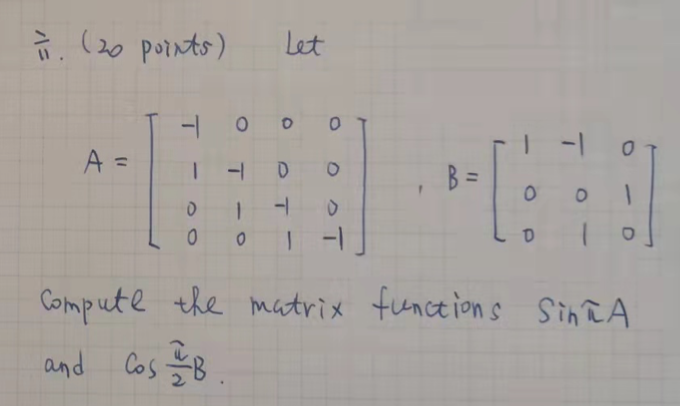 三. (20 points) Let
A = [ -1 0 0 0
1 -1 0 0
0 1 -1 0
0 0 1 -1 ] , B = [ 1 -1 0
0 0 1
0 1 0 ]
Compute the matrix functions Sin πA
and Cos π/2 B.